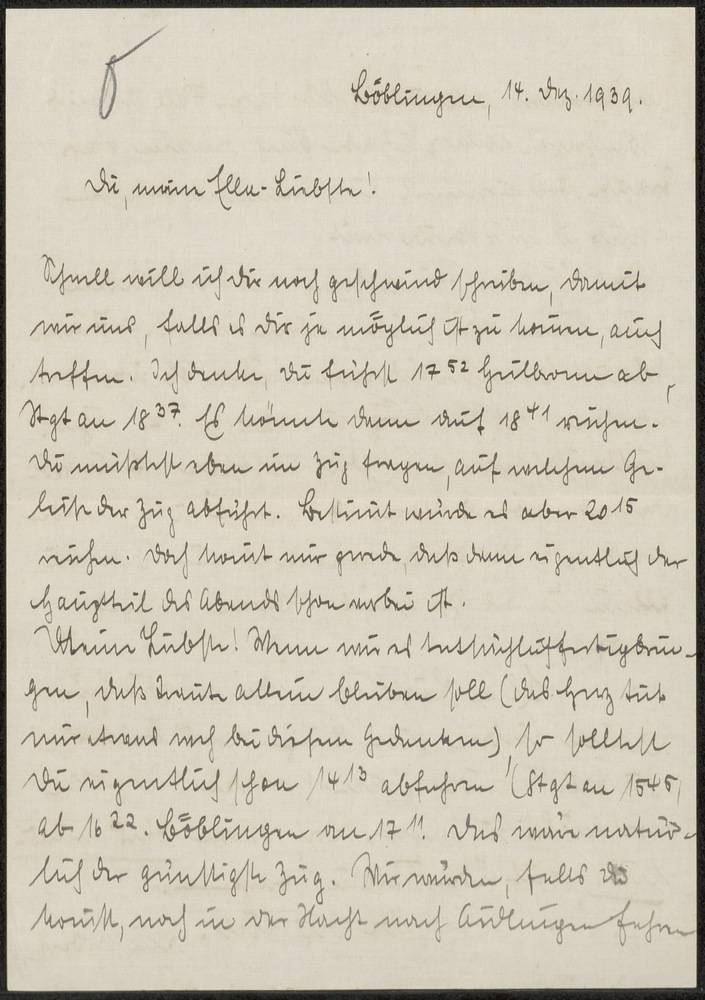 Böblingen, 14. Dez. 1939.
Du, meine Ella-Liebste!
Schnell will ich Dir noch geschwind schreiben, damit
wir uns, falls es Dir ja möglich ist zu kommen, auch
treffen. Ich denke, Du fährst 17 52 Heilbronn ab,
Stgt an 18 37. Es könnte dann auf 18 41 reichen.
Du müßtest eben im Zug fragen, auf welchem Ge-
leise der Zug abfährt. Bestimmt würde es aber 20 15
reichen. Doch kommt mir gerade, daß dann eigentlich der
Hauptteil des Abends schon vorbei ist.
Meine Liebste! Wenn wir es tatsächlich fertigbrin-
gen, daß Traute allein bleiben soll (das Herz tut
mir etwas weh bei diesem Gedanken), so solltest
Du eigentlich schon 14 13 abfahren (Stgt an 15 45,
ab 16 22. Böblingen an 17 11. Das wäre natür-
lich der günstigste Zug. Wir würden, falls Du
kommst, noch in der Nacht nach Aidlingen fahren